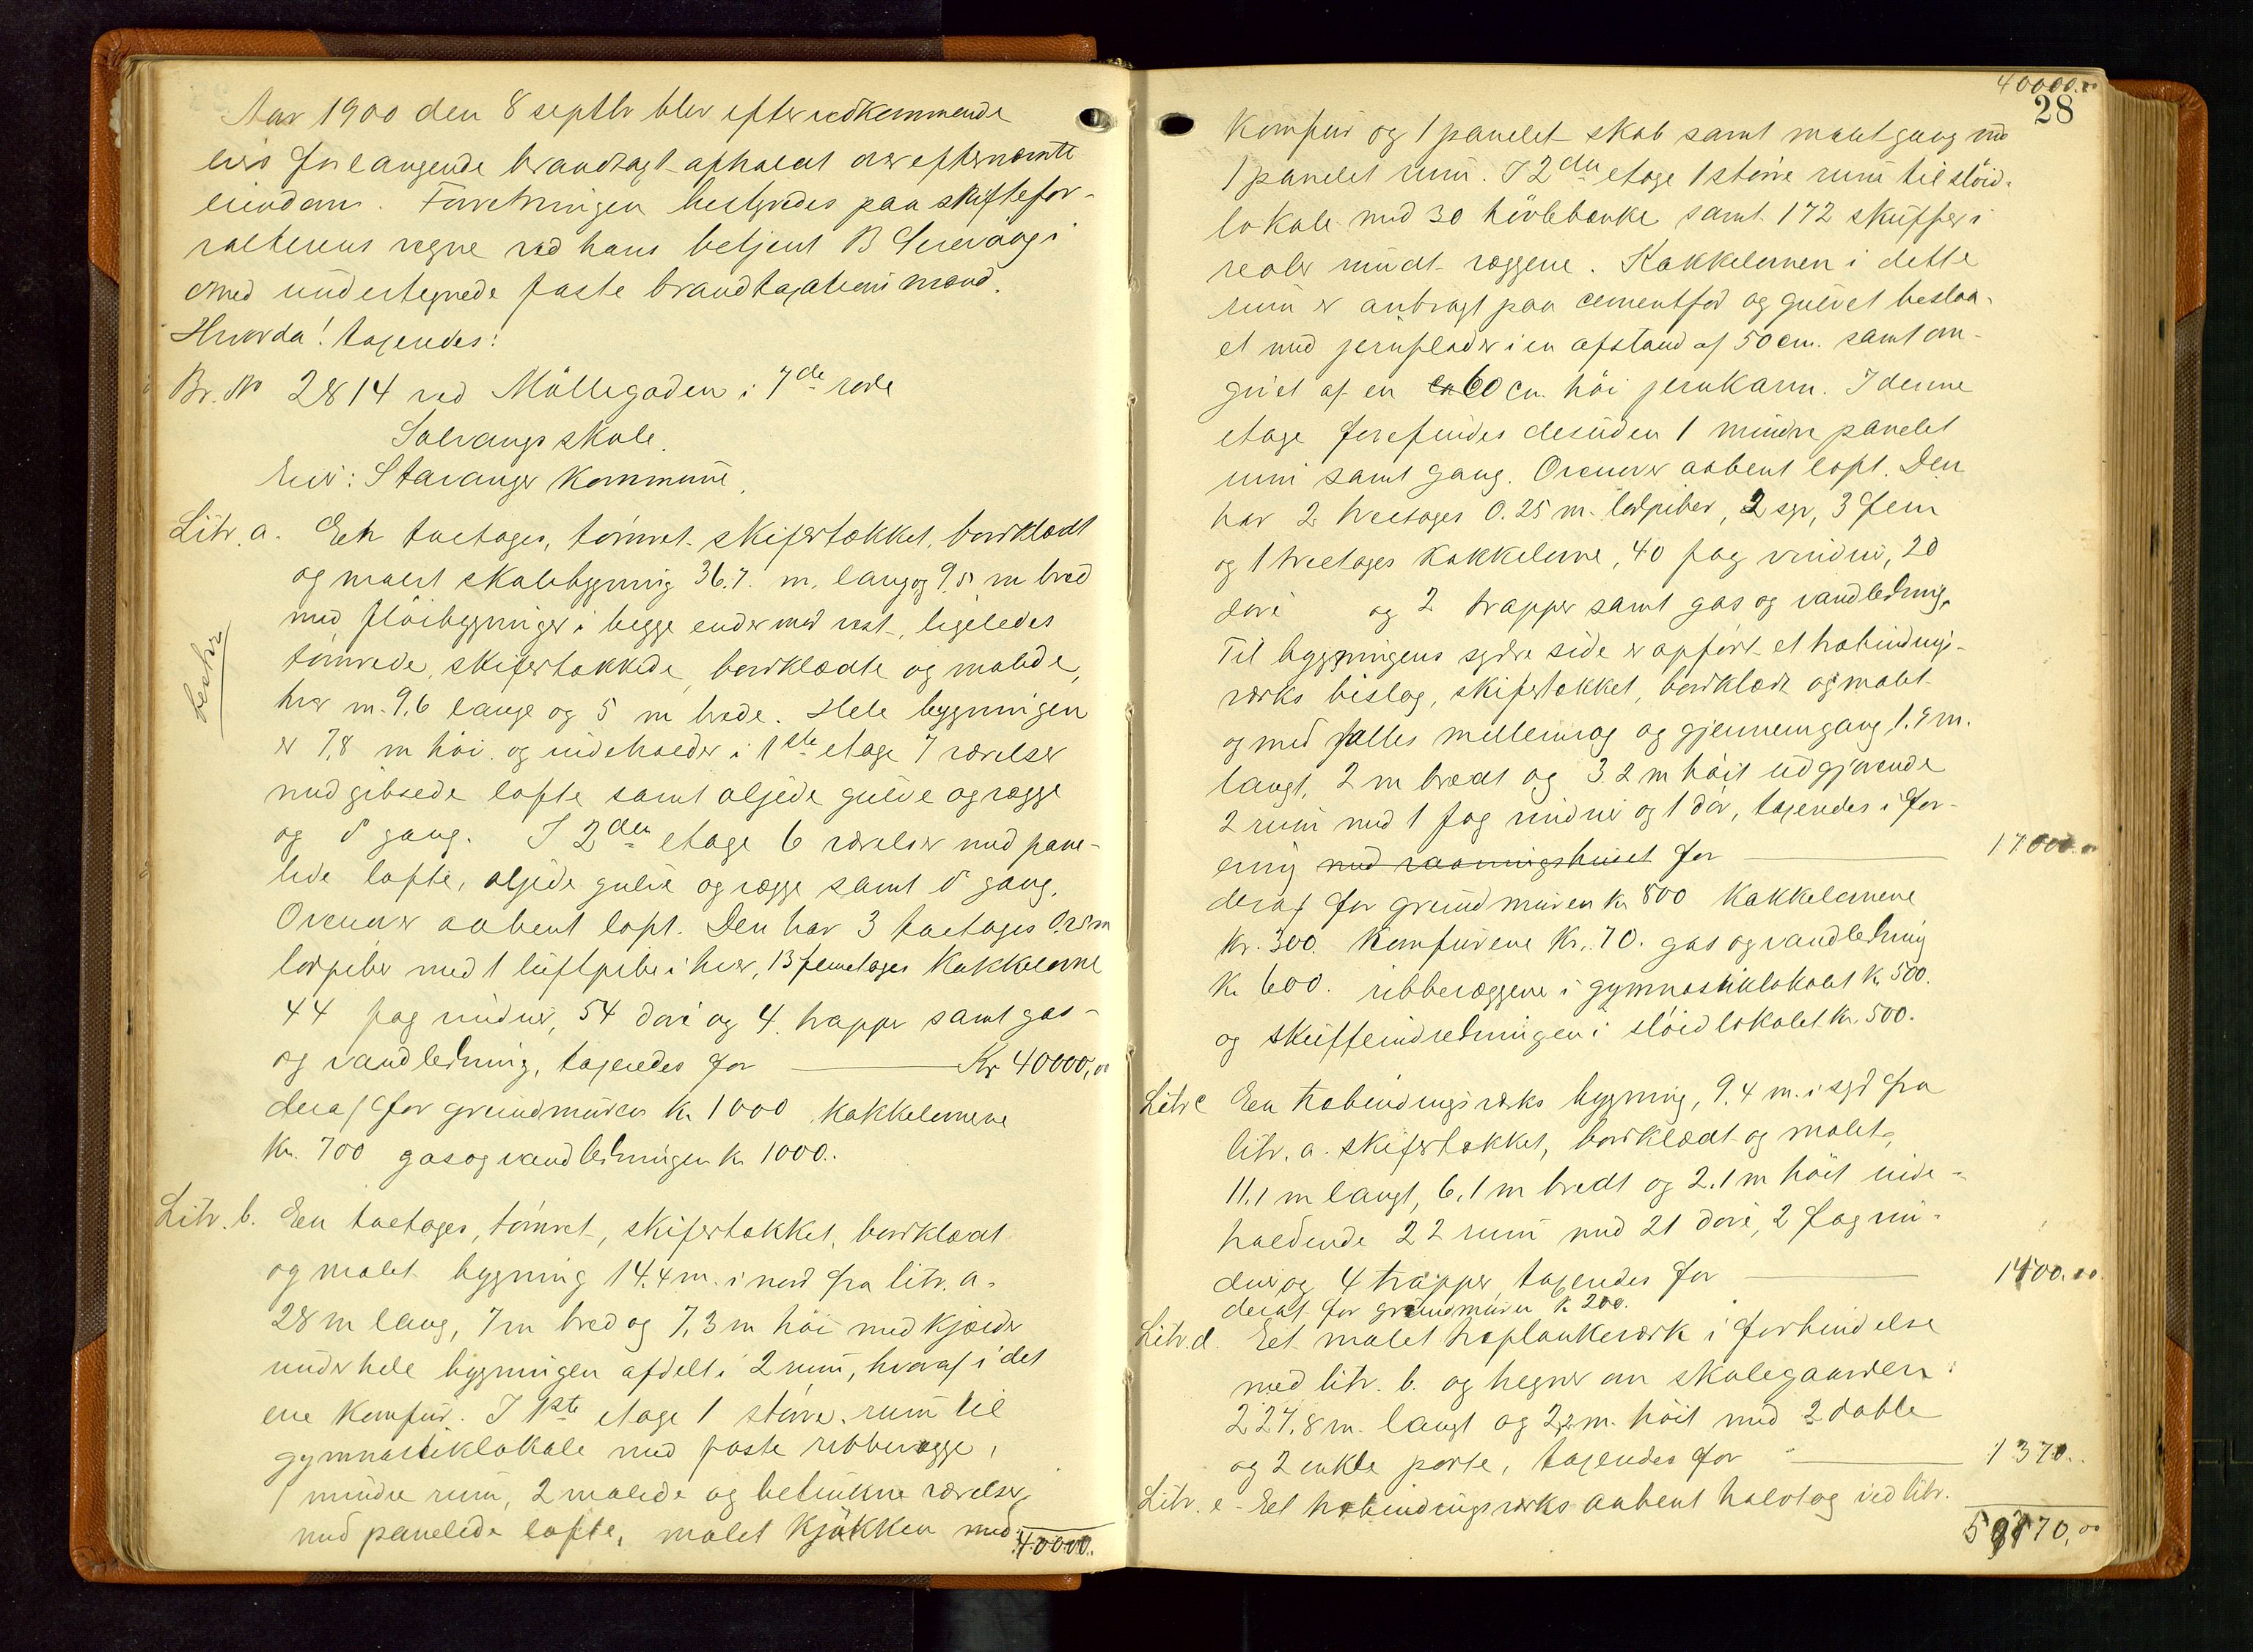 Aar 1900 den 8 septbr blev efter vedkommende
eiers forlangende brandtaxt afholdt over efternævnte
eiendom. Forretningen bestyredes paa skiftefor-
valterens vegne ved hans betjent B
med undertegnede faste brandtaxationsmænd.
Hvorda! taxeredes:
Br. No 2814 ved Möllegaden i 7de rode
Solvangs skole.
Eier: Stavanger kommune.
Litr. a. En toetages, tömret, skifertækket, bordklædt
og malet skolebygning 36.7. m. lang og 9.5 m bred
med flöibygninger i begge ender mod vest, ligeledes
tömrede, skifertækkede, bordklædte og malede,
hver m. 9,6 lange og 5 m brede. Hele bygningen
er 7,8 m höi og indeholder i 1ste etage 7 værelser
med gibsede lofte samt oljede gulve og vægge
og 1 gang. I 2den etage 6 værelser med pane-
lede lofte, oljede gulve og vægge samt 1 gang.
Ovenover aabent loft. Den har 3 toetages 0.25 m
lodpiber med 1 luftpibe i hver, 13 femetages kakkelovne
44 fag vinduer, 54 döre og 4 trapper samt gas-
og vandledning, taxeredes for Kr 40000,00
deraf for grundmuren Kr. 1000 kakkelovnene
Kr. 700 gas og vandledningen Kr 1000.
Litr. b. En toetages, tömret, skifertækket, bordklædt
og malet bygning 14.4 m. i nord fra litr. a.
28 m lang, 7 m bred og 7,3 m höi med kjælder
under hele bygningen afdelt i 2 rum, hvoraf i det
ene komfur. I 1ste etage 1 större rum til
gymnastiklokale med faste ribbevægge,
1 mindre rum, 2 malede og betrukne værelser
med panelede lofte, malet kjökken med
40000.
40000.00
28
komfur og 1 panelet skab samt malet gang med
1 panelet rum. I 2den etage 1 större rum til slöid-
lokale med 30 hövlebænke samt 172 skuffer i
reoler rundt væggene. Kakkelovnen i dette
rum er anbragt paa cementfod og gulvet beslaa-
et med jernplader i en afstand af 50 cm. samt om-
givet af en 60 cm. höi jernkarm. I denne
etage forefindes desuden 1 mindre panelet
rum samt gang. Ovenover aabent loft. Den
har 2 treetages 0.25 m. lodpiber, 2 syv, 3 fem
og 1 treetages kakkelovne, 40 fag vinduer, 20
döre og 2 trapper samt gas og vandledning.
Til bygningens syndre side er opfört et trebindings-
verks bislag, skifertækket, bordklædt og malet
og med fælles mellemvæg og gjennemgang, 1.9 m.
langt, 2 m bredt og 3.2 m höit udgjörende
2 rum med 1 fag vinduer og 1 dör, taxeredes i for-
ening med vaaningshuset for 17000.00
deraf for grundmuren Kr 800 kakkelovnene
Kr. 300. komfurene Kr. 70. gas og vandledning
Kr 600. ribbevæggene i gymnastiklokalet Kr 500.
og skuffeindretningen i slöidlokalet Kr. 500.
Litr c En trebindingsverks bygning, 9.4 m. i syd fra
litr. a. skifertækket, bordklædt og malet,
11.1 m langt, 6.1 m bredt og 2.1 m höit inde-
holdende 22 rum med 21 döre, 2 fag vin-
duer og 4 trapper, taxeredes for 1400.00.
deraf for grundmuren Kr 200.
Litr. d. Et malet træplankeværk i forbindelse
med litr. b. og hegner om skolegaarden:
227.8 m. langt og 2.2 m. höit med 2 doble
og 2 enkle porte, taxeredes for 1370..
Litr. e. Et trebindingsverks aabent halvtag ved litr.
70,00